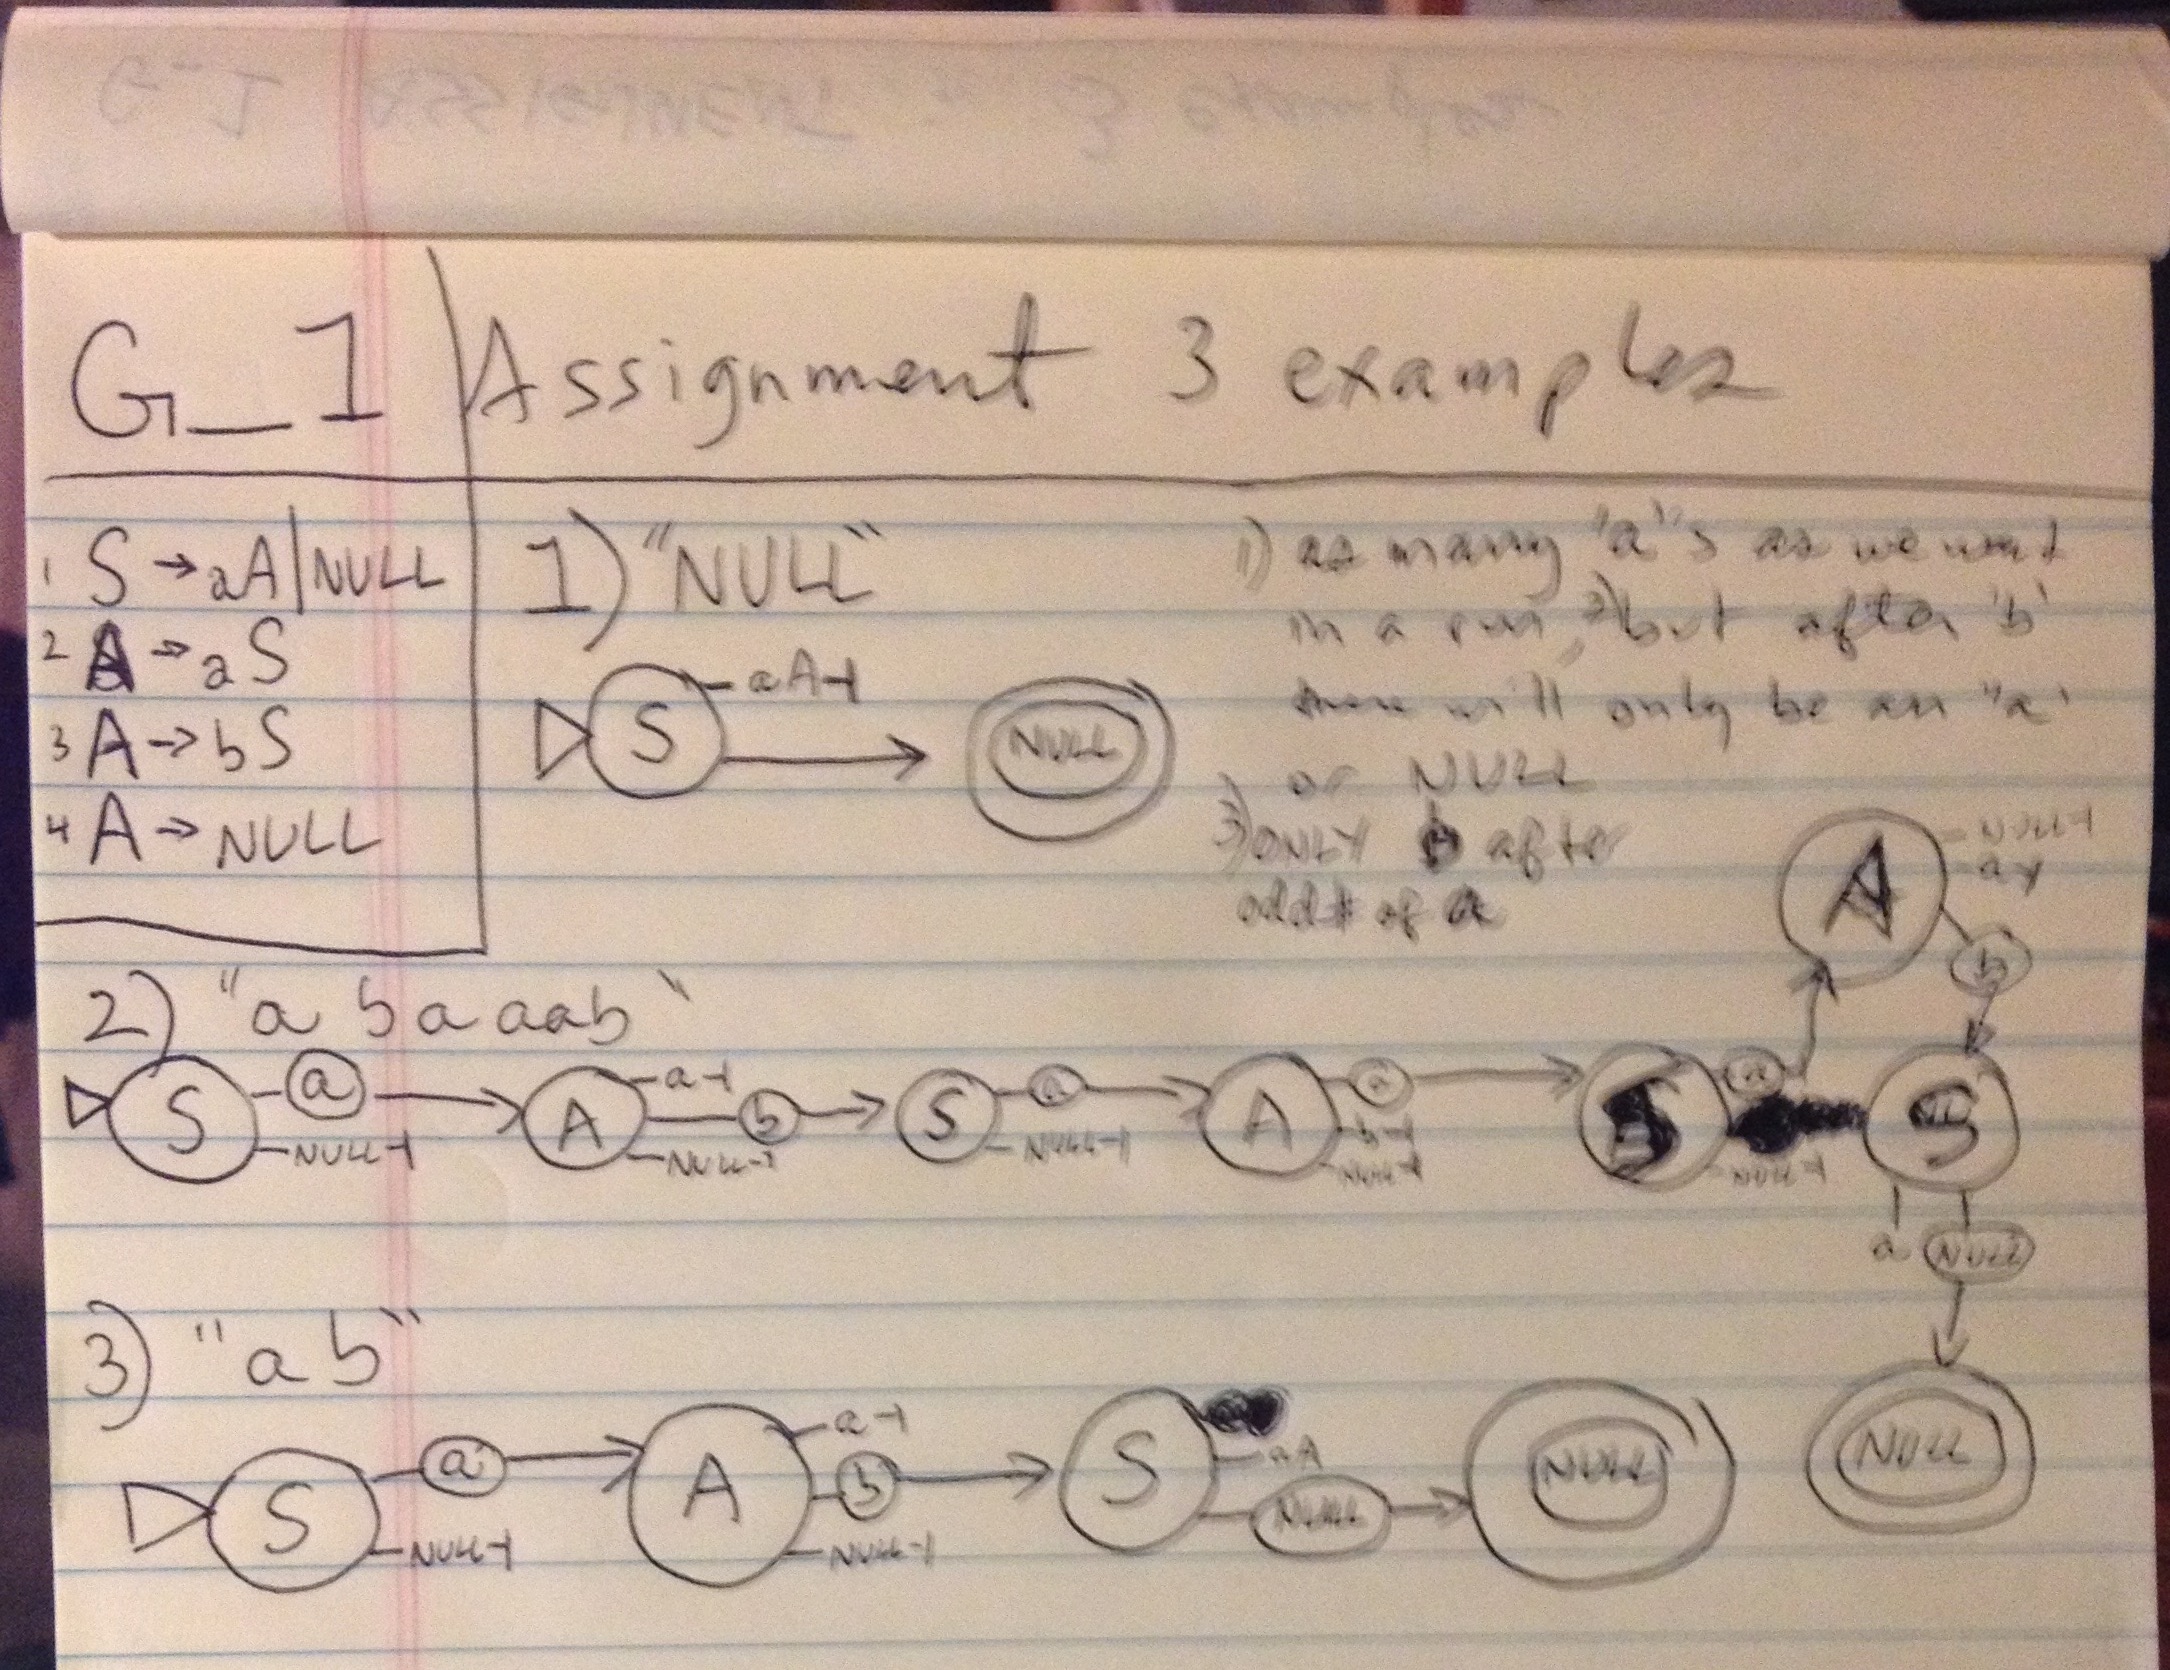 G_1
Assignment 3 examples
1 S → aA|NULL
2 A → aS
3 A → bS
4 A → NULL
1) "NULL"
S aA NULL
1) as many "a"s as we want
in a run, 2) but after 'b'
there will only be an "a"
or NULL
3) ONLY b after
odd # of a
2) "a b a aab"
S a NULL A a b NULL S a NULL A a b NULL S a NULL
A NULL a b
S a NULL
NULL
3) "ab"
S a NULL A a b NULL S aA NULL NULL